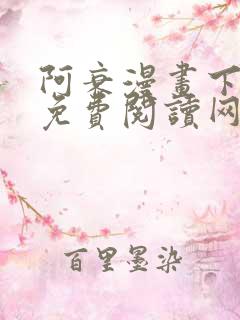 阿衰漫畫下
免費閱讀网
百里墨染